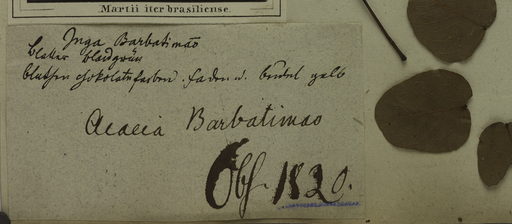 Martii iter brasiliense.
Inga Barbatimão
blätter blassgrün
blüthen chokolatefarben. faden u. beutel gelb
Acacia Barbatimao
Obs. 1820.